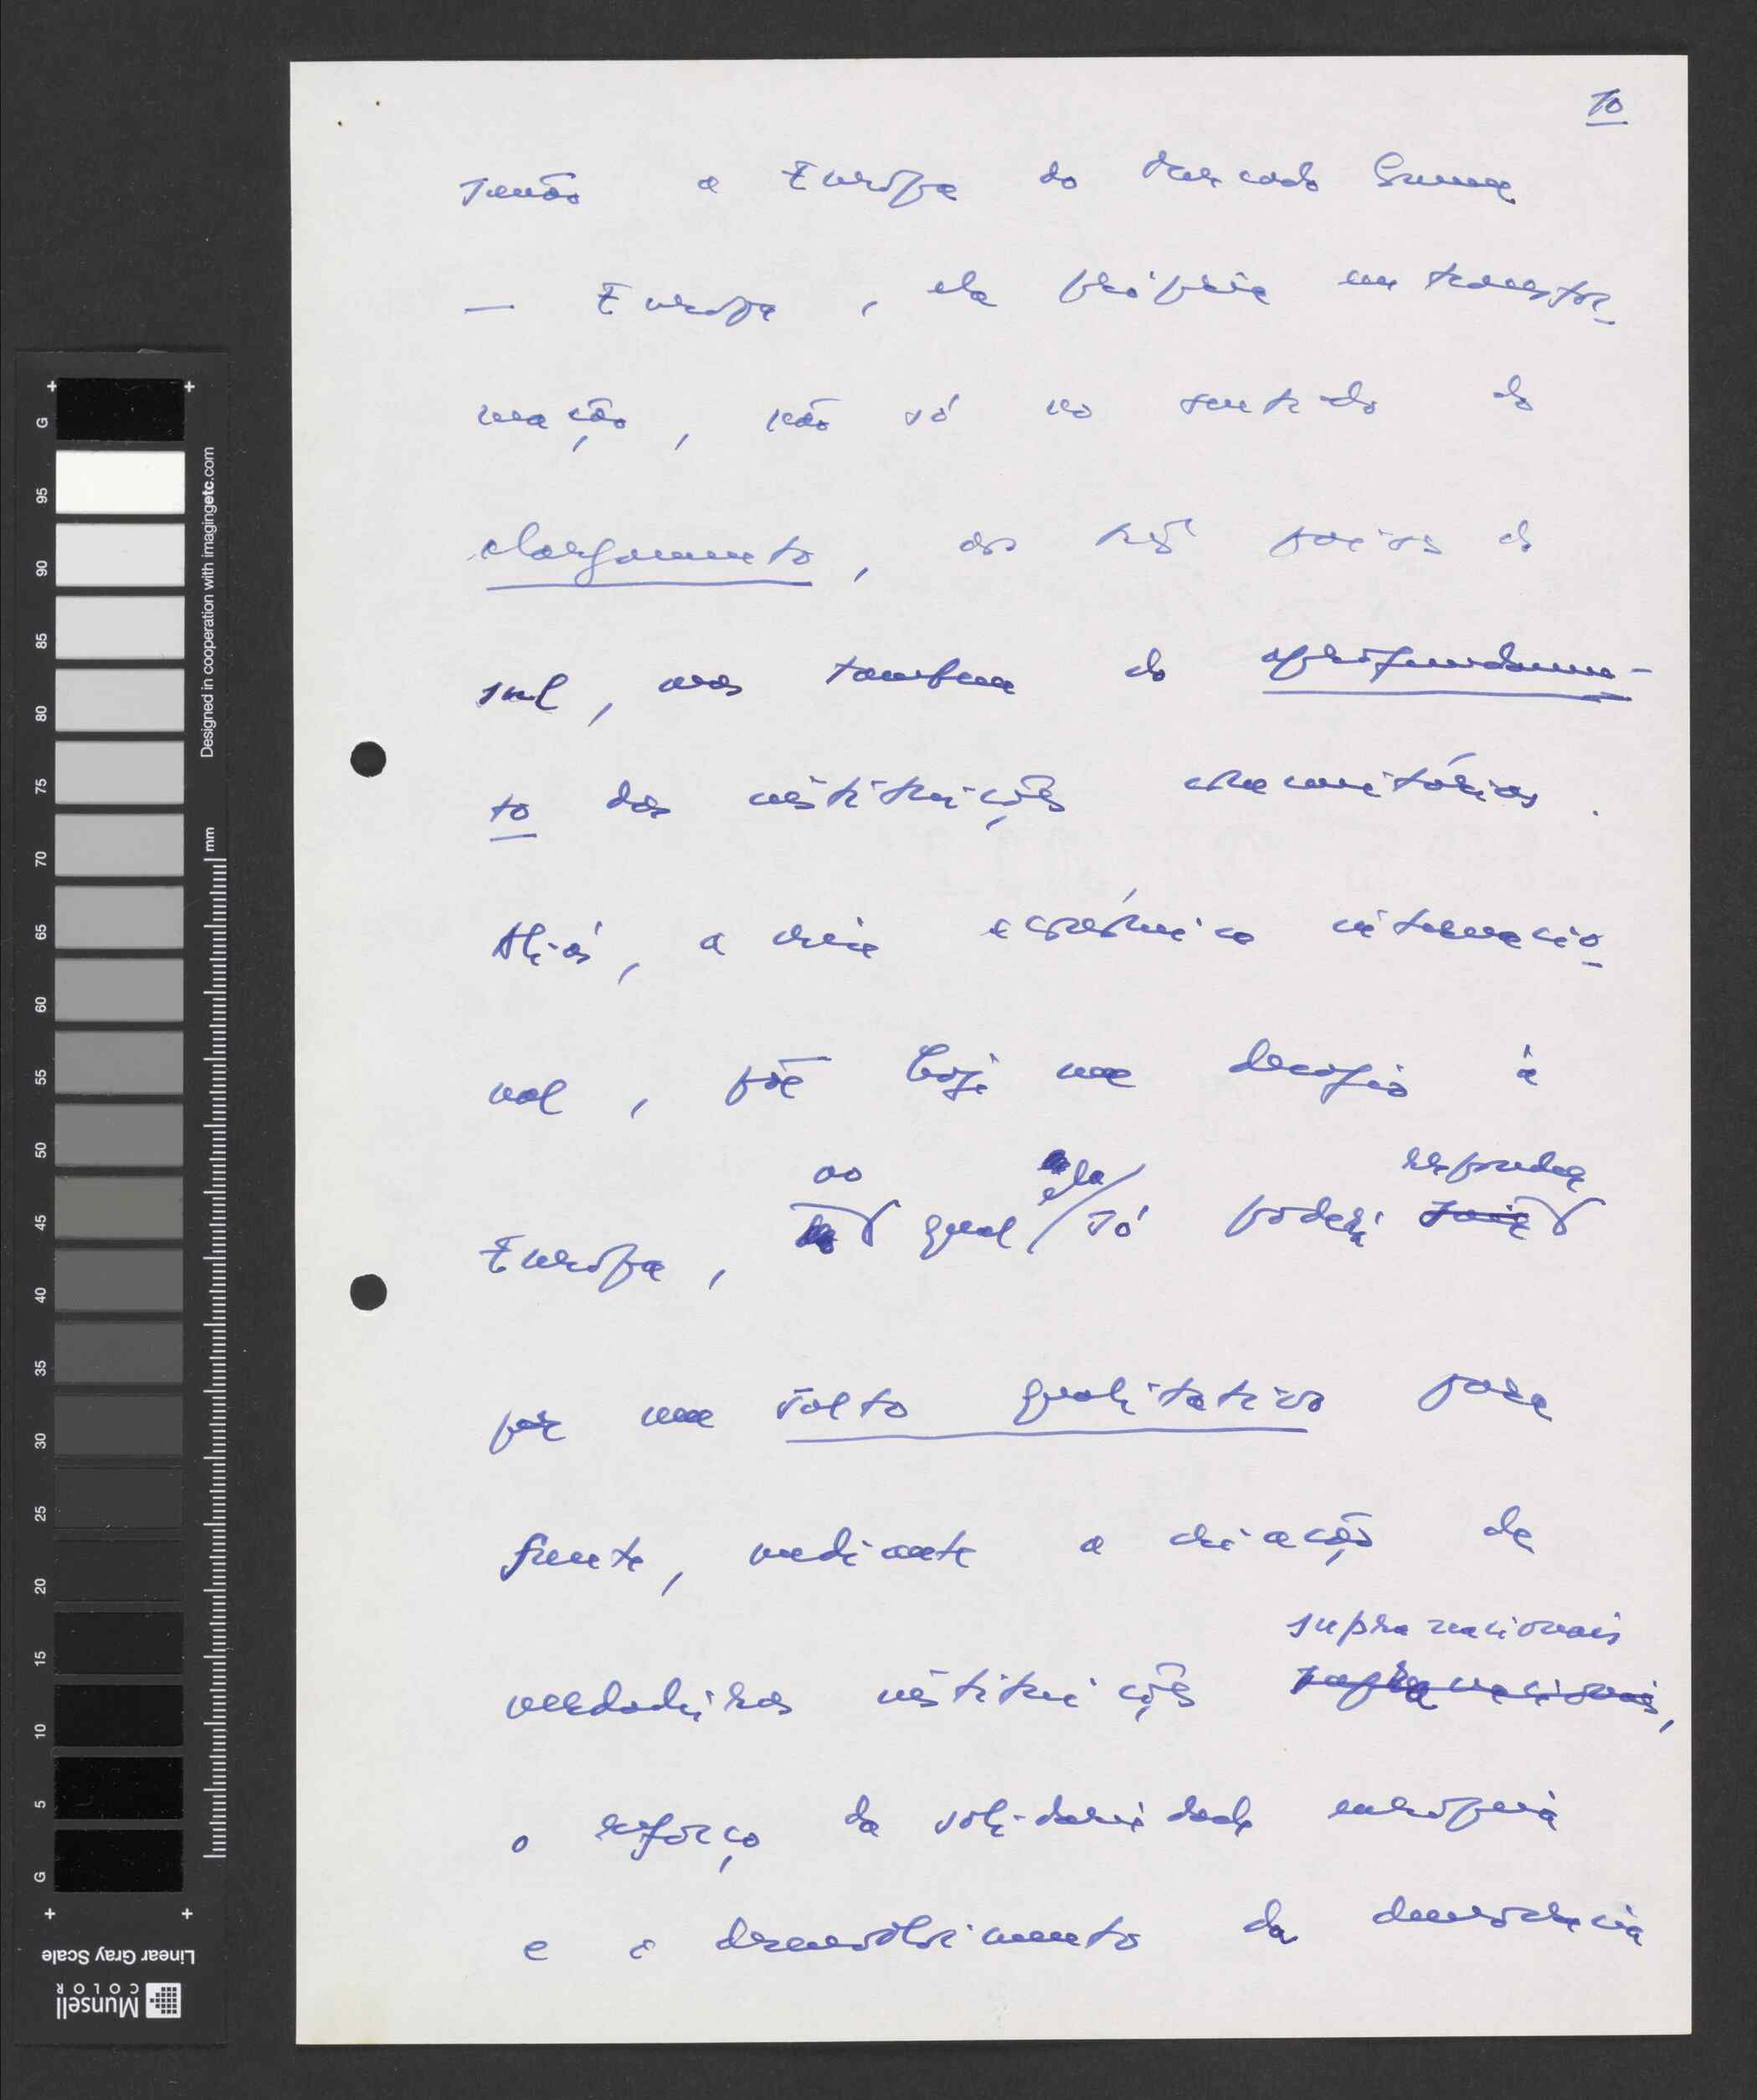 10
senão a Europa do Mercado Comum
— Europa, ela própria em transfor-
mação, não só no sentido do
alargamento, aos três países do
sul, mas também do aprofundamen-
to das instituições comunitárias.
Aliás, a crise económica internacio-
nal, põe hoje um desafio à
ao ela responder
Europa, qual só poderá
por um salto qualitativo para
frente, mediante a criação de
supranacionais
verdadeiras instituições supranacionais,
o reforço da solidariedade europeia
e o desenvolvimento da democracia
G
95
90
85
80
75
70
65
60
55
50
45
40
35
30
25
20
15
10
5
G
Designed in cooperation with imagingetc.com
mm
Linear Gray Scale
Munsell
COLOR